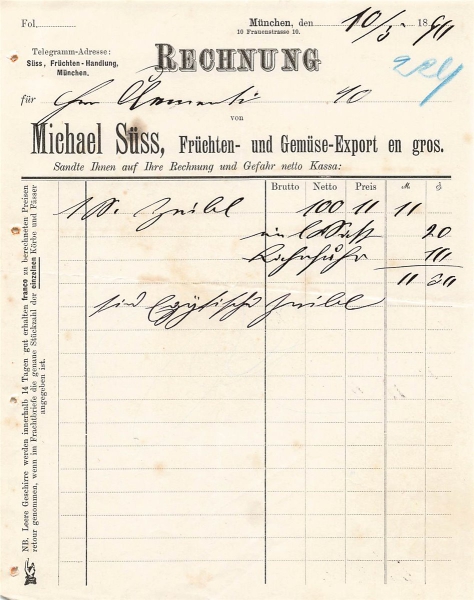 Fol.
München, den 10/5 18 91
10 Frauenstrasse 10.
Telegramm-Adresse:
Süss, Früchten-Handlung,
München.
RECHNUNG
für Herr
von
Michael Süss, Früchten- und Gemüse-Export en gros.
Sandte Ihnen auf Ihre Rechnung und Gefahr netto Kassa:
Brutto Netto Preis M. ₰
1 S. Zwibel 100 11 11
20
10
11 30
sind Egÿtische Zwibel
NB. Leere Geschirre werden innerhalb 14 Tagen gut erhalten franco zu berechneten Preisen
retour genommen, wenn im Frachtbriefe die genaue Stückzahl der einzelnen Körbe und Fässer
angegeben ist.